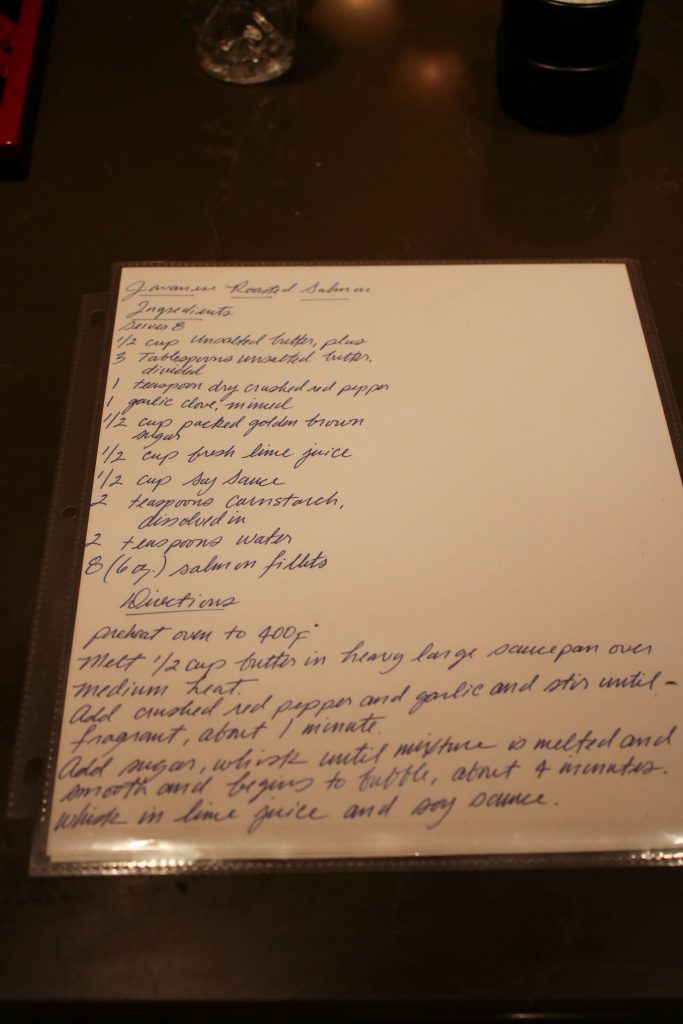 Javanese Roasted Salmon
Ingredients
Serves 8
1/2 cup unsalted butter, plus
3 Tablespoons unsalted butter,
divided
1 teaspoon dry crushed red pepper
1 garlic clove, minced
1/2 cup packed golden brown
sugar
1/2 cup fresh lime juice
1/2 cup soy sauce
2 teaspoons cornstarch,
dissolved in
2 teaspoons water
8 (6 oz.) salmon fillets
Directions
preheat oven to 400F°
Melt 1/2 cup butter in heavy large saucepan over
medium heat.
Add crushed red pepper and garlic and stir until -
fragrant, about 1 minute.
Add sugar, whisk until mixture is melted and
smooth and begins to bubble, about 4 minutes.
whisk in lime juice and soy sauce.